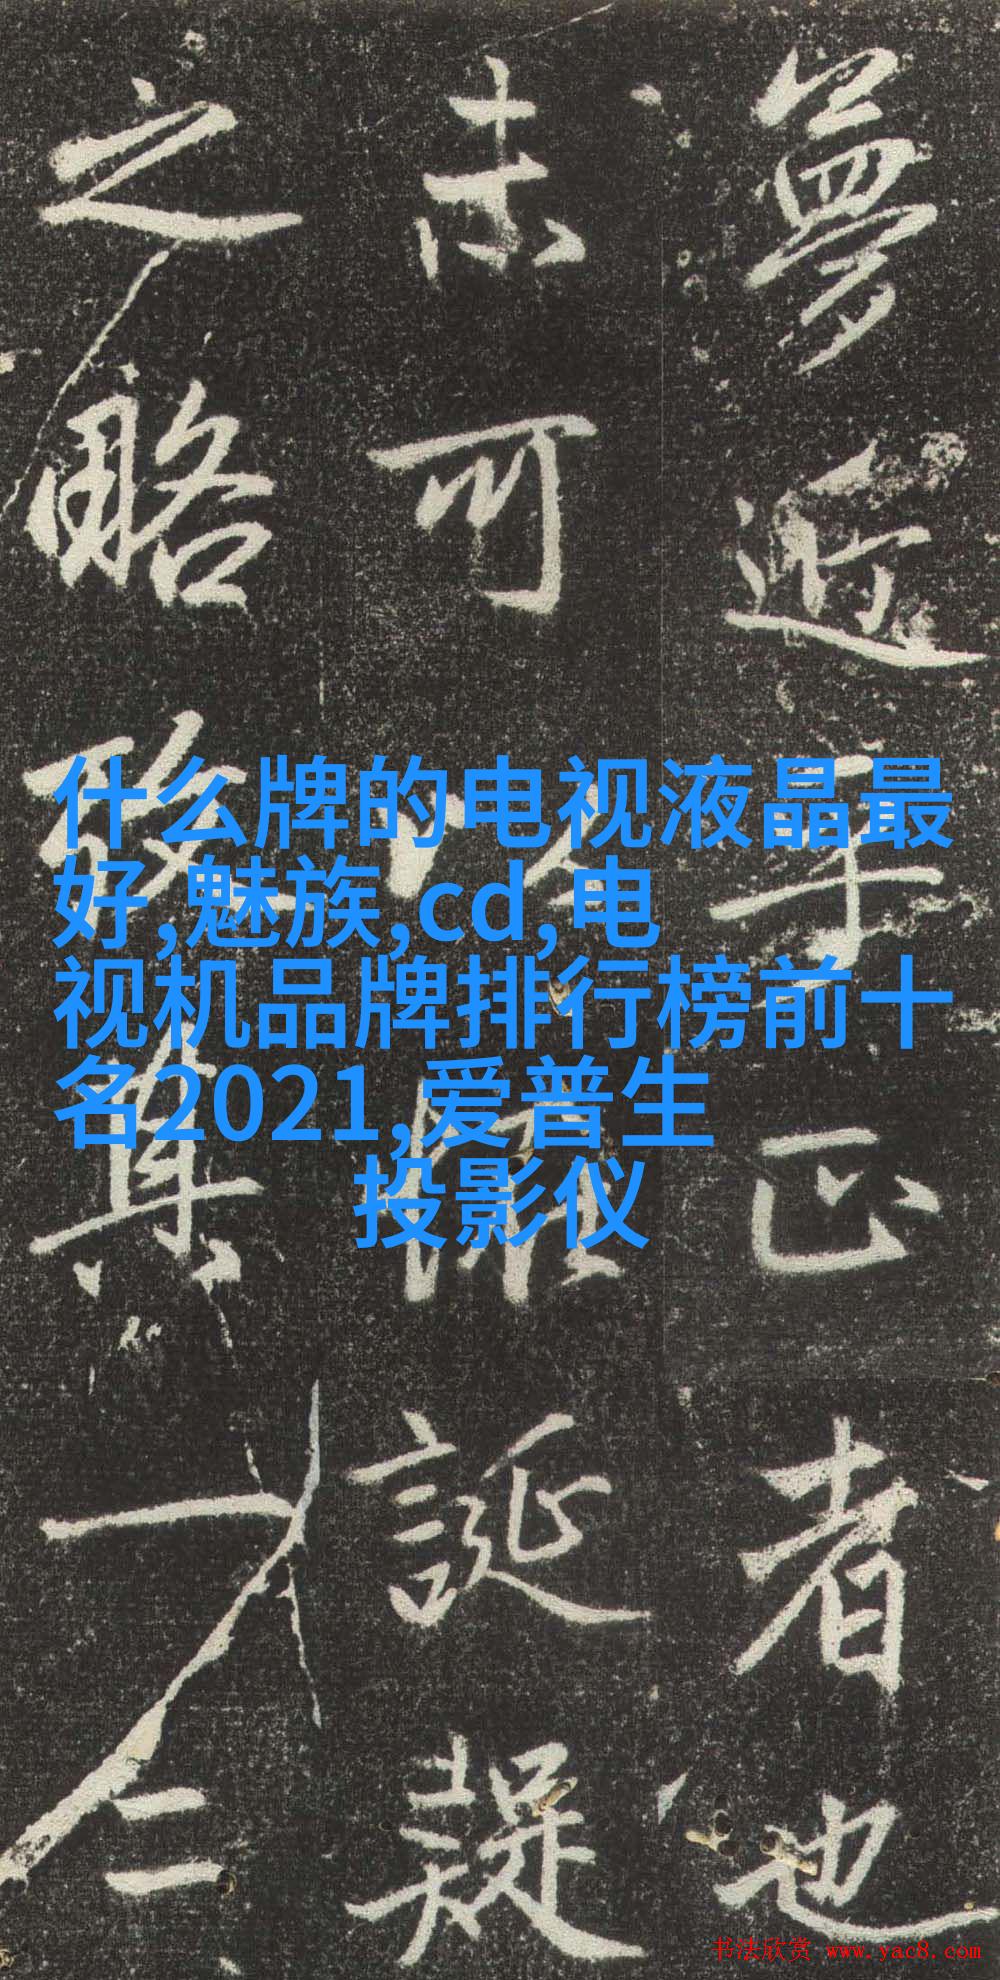 夢近乎正者也
可以誕疑
之略
一
什么牌的电视液晶最
好,魅族,cd,电
视机品牌排行榜前十
名2021,爱普生
投影仪
书法欣赏 www.yac8.com